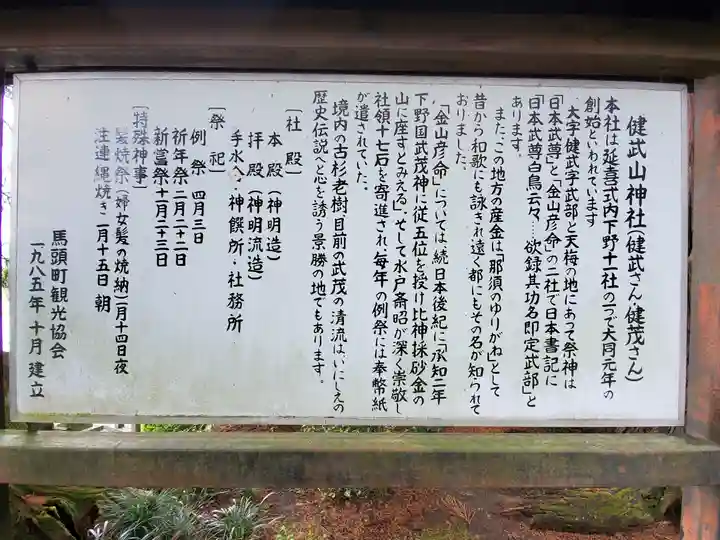 健武山神社(健武さん・健茂さん)
本社は延喜式内下野十一社の一つで大同元年の
創始といわれています
大字健武字武部と天梅の地にあって祭神は
「日本武尊」と「金山彦命」の二社で日本書記に
「日本武尊白鳥云々…欲録其功名即定武部」と
あります。
また、この地方の産金は「那須のゆりがね」として
昔から和歌にも詠まれ遠く都にもその名が知られて
おりました。
「金山彦命」については、続日本後紀に「承知二年
下野国武茂神に従五位を授け比神採砂金の
山に座すとみえる」、そして水戸斉昭が深く崇敬し
社領十七石を寄進され、毎年の例祭には奉幣紙
が遣されていた。
境内の古杉老樹、目前の武茂の清流は、いにしえの
歴史伝説へと心を誘う景勝の地でもあります。
〔社殿〕
本殿(神明造)
拝殿(神明流造)
手水へ・神饌所・社務所
〔祭祀〕
例祭 四月三日
祈年祭二月二十二日
新嘗祭十一月二十三日
〔特殊神事〕
髪焼祭(婦女髪の焼納)一月十四日夜
注連縄焼き一月十五日 朝
馬頭町観光協会
一九八五年十月建立